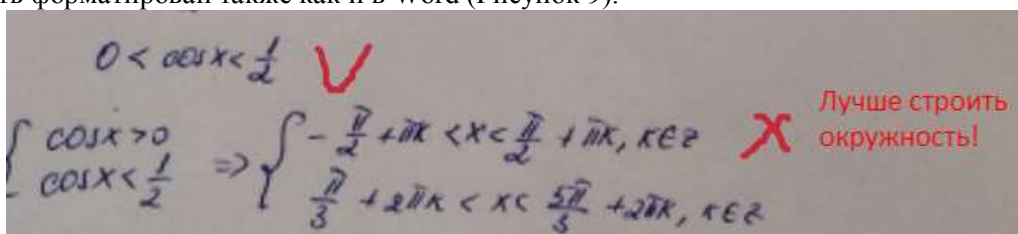 ть форматирован также как и в Word (Рисунок 9).
0 < cosx < 1/2 V
{ cosx > 0 => { -π/2 + πk < x < π/2 + πk, k∈z X
cosx < 1/2 π/3 + 2πk < x < 5π/3 + 2πk, k∈z
Лучше строить
окружность!